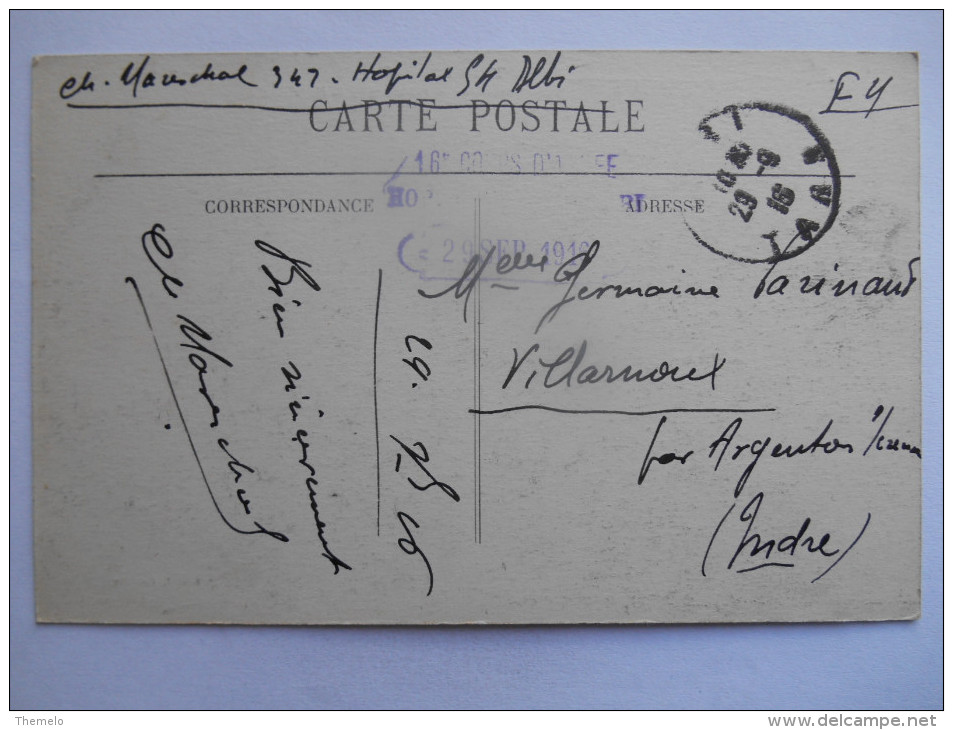 Ch. Mareschal 347 - Hopital 54 Albi
F M
CARTE POSTALE
16e CORPS D'ARMEE
HOP
BI
29 SEP. 1916
CORRESPONDANCE
ADRESSE
TARN
29 -9
16
Bien sincèrement
Ch Mareschal
29. 7S 16
Melle Germaine Parinaud
Villarnoux
par Argenton s/Creuse
(Indre)
Themelo
delcampe.net